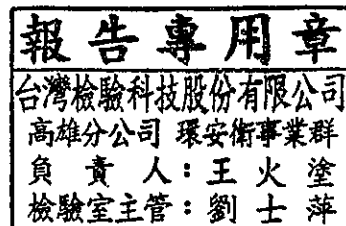 報告專用章
台灣檢驗科技股份有限公司
高雄分公司 環安衛事業群
負責人：王火塗
檢驗室主管：劉士萍